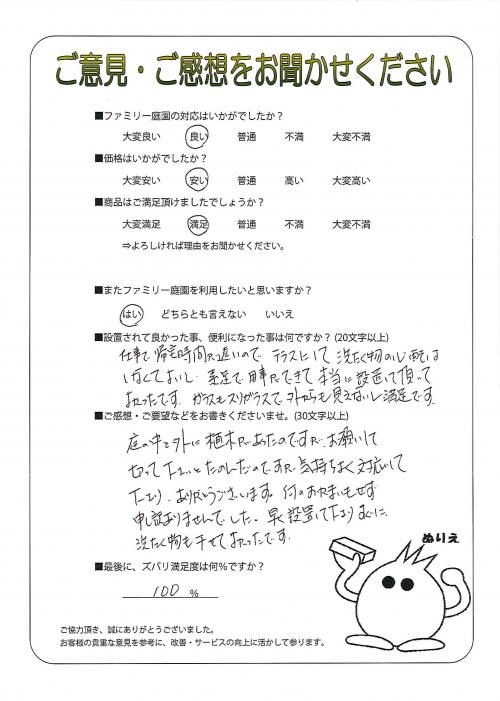 ご意見・ご感想をお聞かせください
■ファミリー庭園の対応はいかがでしたか?
大変良い 良い 普通 不満 大変不満
■価格はいかがでしたか?
大変安い 安い 普通 高い 大変高い
■商品はご満足頂けましたでしょうか?
大変満足 満足 普通 不満 大変不満
⇒よろしければ理由をお聞かせください。
■またファミリー庭園を利用したいと思いますか?
はい どちらとも言えない いいえ
■設置されて良かった事、便利になった事は何ですか? (20文字以上)
仕事で帰宅時間が遅いので、テラスにして洗たく物の心配は
しなくてよいし、
本当に設置して頂いて
よかったです。ガラスもスリガラスで外からも見えないし満足です。
■ご感想・ご要望などをお書きくださいませ。(30文字以上)
庭の中と外に植木があったのですが、お願いして
切って下さいとたのんだのですが気持ちよく対応して
下さり、ありがとうございます。何のおかまいもせず
申し訳ありませんでした。早く設置して下さりすぐに
洗たく物も干せてよかったです。
■最後に、ズバリ満足度は何%ですか?
100 %
ぬりえ
ご協力頂き、誠にありがとうございました。
お客様の貴重な意見を参考に、改善・サービスの向上に活かして参ります。